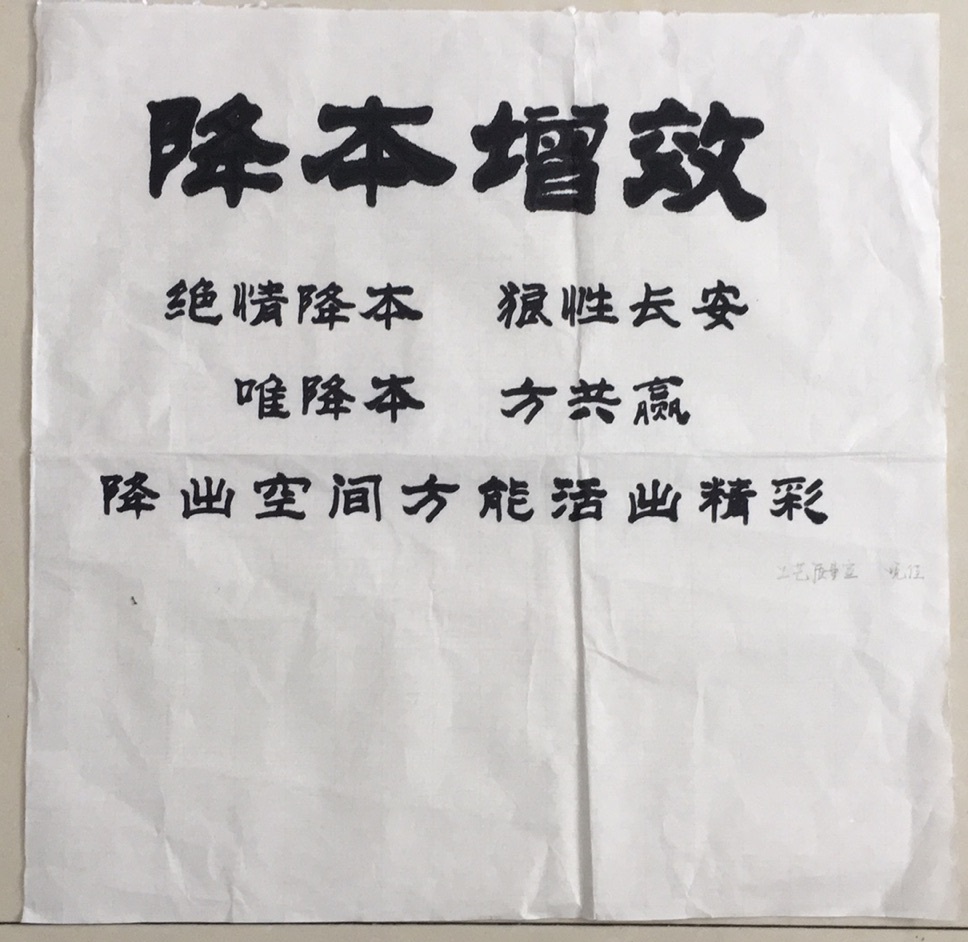 降本增效
绝情降本 狼性长安
唯降本 方共赢
降出空间方能活出精彩
工艺质量